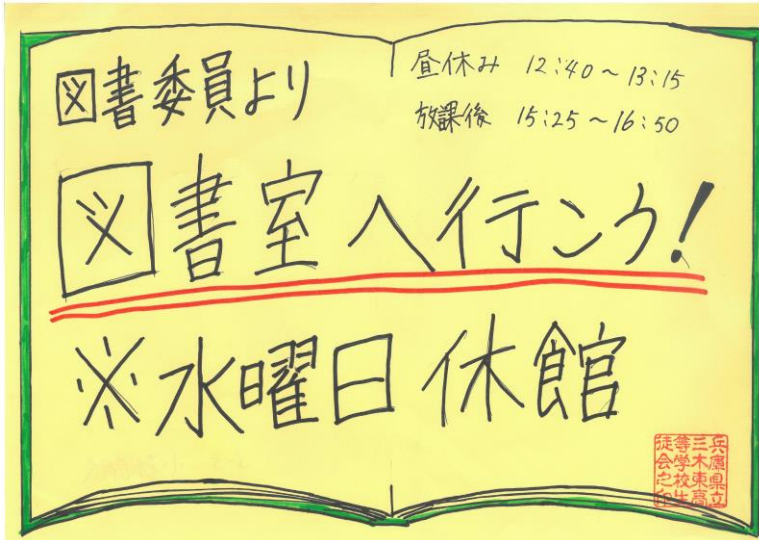 図書委員より
昼休み 12:40~13:15
放課後 15:25~16:50
図書室へ行こう!
※水曜日休館
兵庫県立
三木東高
等学校生
徒会之印